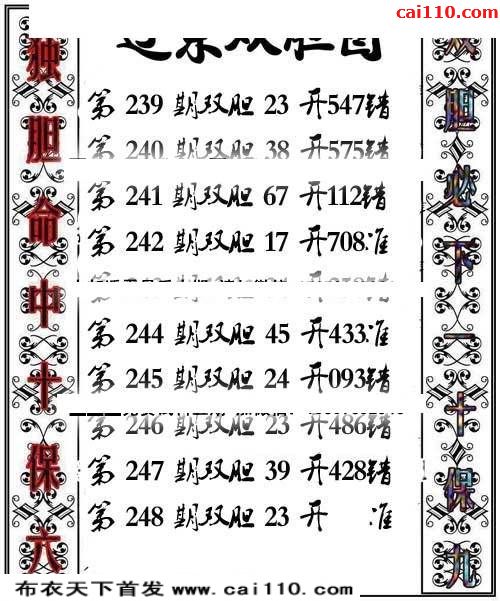 cai110.com
双胆图
独胆命中十保六
双胆必下二十保九
第 239 期双胆 23 开547错
第 240 期双胆 38 开575错
第 241 期双胆 67 开112错
第 242 期双胆 17 开708准
第 244 期双胆 45 开433准
第 245 期双胆 24 开093错
第 246 期双胆 23 开486错
第 247 期双胆 39 开428错
第 248 期双胆 23 开 准
布衣天下首发 www.cai110.com